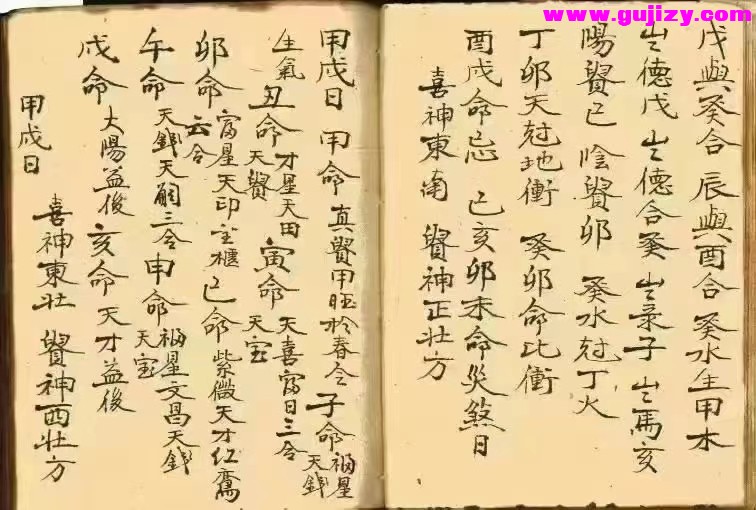 www.gujizy.com
戊與癸合 辰與酉合 癸水生甲木
岁德戊 岁德合癸 岁录子 岁馬亥
陽貴巳 陰貴卯 癸水尅丁火
丁卯天尅地衝 癸卯命比衝
酉戌命忌 巳亥卯未命災煞日
喜神東南 貴神正北方
甲戌日 甲命 真貴甲旺於春令 子命 福星天錢
生氣 丑命 才星天田天貴 寅命 天喜富日三合天宝
卯命 富星天印櫃云合 巳命 紫微天才红鸞
午命 天錢天三合 申命 福星文昌天錢天宝
戌命 大陽益後 亥命 天才益後
甲戌日 喜神東北 貴神西北方